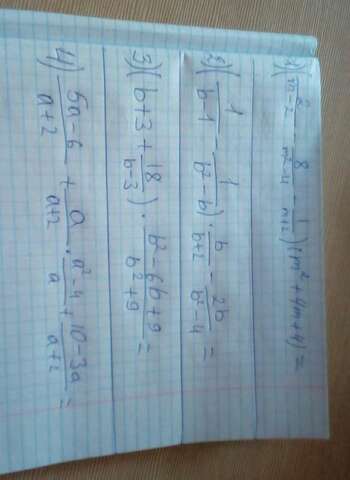 1) (2/(m-2) - 8/(m²-4) - 1/(m+2)) (m²+4m+4) =
2) (1/(b-1) - 1/(b²-b)) · b/(b+2) - 2b/(b²-4) =
3) (b+3 + 18/(b-3)) · (b²-6b+9)/(b²+9) =
4) (5a-6)/(a+2) + a/(a+2) · (a²-4)/a + (10-3a)/(a+2) =